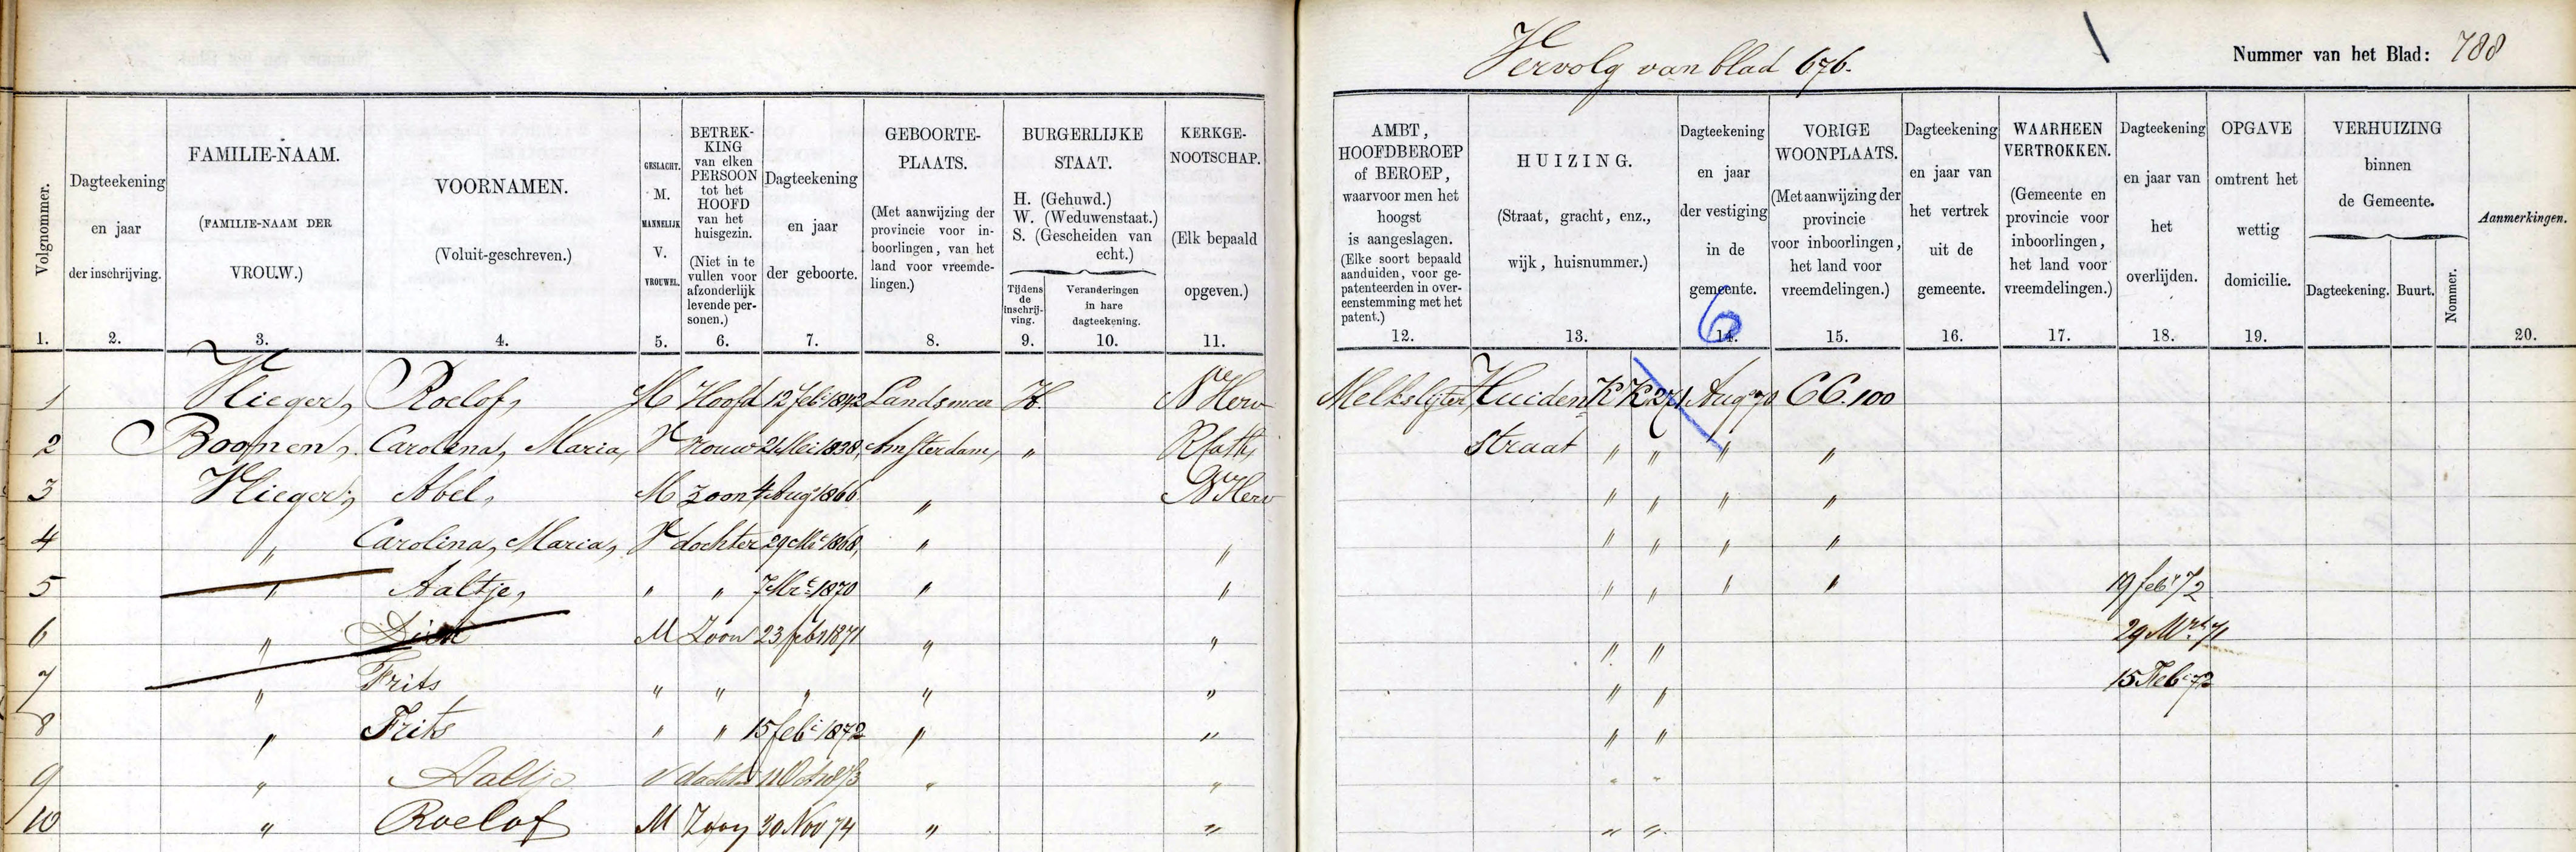 Vervolg van blad 676.
Nummer van het Blad: 788
Volgnommer.
1.
Dagteekening
en jaar
der inschrijving.
2.
FAMILIE-NAAM.
(FAMILIE-NAAM DER
VROUW.)
3.
VOORNAMEN.
(Voluit-geschreven.)
4.
GESLACHT.
M.
MANNELIJK
V.
VROUWEL.
5.
BETREK-
KING
van elken
PERSOON
tot het
HOOFD
van het
huisgezin.
(Niet in te
vullen voor
afzonderlijk
levende per-
sonen.)
6.
Dagteekening
en jaar
der geboorte.
7.
GEBOORTE-
PLAATS.
(Met aanwijzing der
provincie voor in-
boorlingen, van het
land voor vreemde-
lingen.)
8.
BURGERLIJKE
STAAT.
H. (Gehuwd.)
W. (Weduwenstaat.)
S. (Gescheiden van
echt.)
Tijdens
de
inschrij-
ving.
9.
Veranderingen
in hare
dagteekening.
10.
KERKGE-
NOOTSCHAP.
(Elk bepaald
opgeven.)
11.
AMBT,
HOOFDBEROEP
of BEROEP,
waarvoor men het
hoogst
is aangeslagen.
(Elke soort bepaald
aanduiden, voor ge-
patenteerden in over-
eenstemming met het
patent.)
12.
HUIZING.
(Straat, gracht, enz.,
wijk, huisnummer.)
13.
Dagteekening
en jaar
der vestiging
in de
gemeente.
14.
6
VORIGE
WOONPLAATS.
(Met aanwijzing der
provincie
voor inboorlingen,
het land voor
vreemdelingen.)
15.
Dagteekening
en jaar van
het vertrek
uit de
gemeente.
16.
WAARHEEN
VERTROKKEN.
(Gemeente en
provincie voor
inboorlingen,
het land voor
vreemdelingen.)
17.
Dagteekening
en jaar van
het
overlijden.
18.
OPGAVE
omtrent het
wettig
domicilie.
19.
VERHUIZING
binnen
de Gemeente.
Dagteekening.
Buurt.
Nommer.
Aanmerkingen.
20.
1 Vlieger, Roelof, M Hoofd 12 Feb: 1842 Landsmeer H. N Herv Melkslijter Huiden KK 271 Aug 70 CC. 100
2 Boomen, Carolina, Maria, V Vrouw 21 Mei 1838, Amsterdam, " R Cath, straat " " " "
3 Vlieger, Abel, M zoon 4 Aug 1866 " N Herv " " " "
4 " Carolina, Maria, V dochter 29 Mrt 1868, " " " " " "
5 " Aaltje, " " 7 Mrt 1870 " " " " " " 19 feb 72
6 " M Zoon 23 feb 1871 " " " " 29 Mrt 71
7 " Frits " " " " " " " 15 Feb 72
8 " Frits " " 15 feb: 1872 " " " "
9 " Aaltje V dochter 11 Oct 1873 " " " "
10 " Roelof M Zoon 20 Nov 74 " " " "